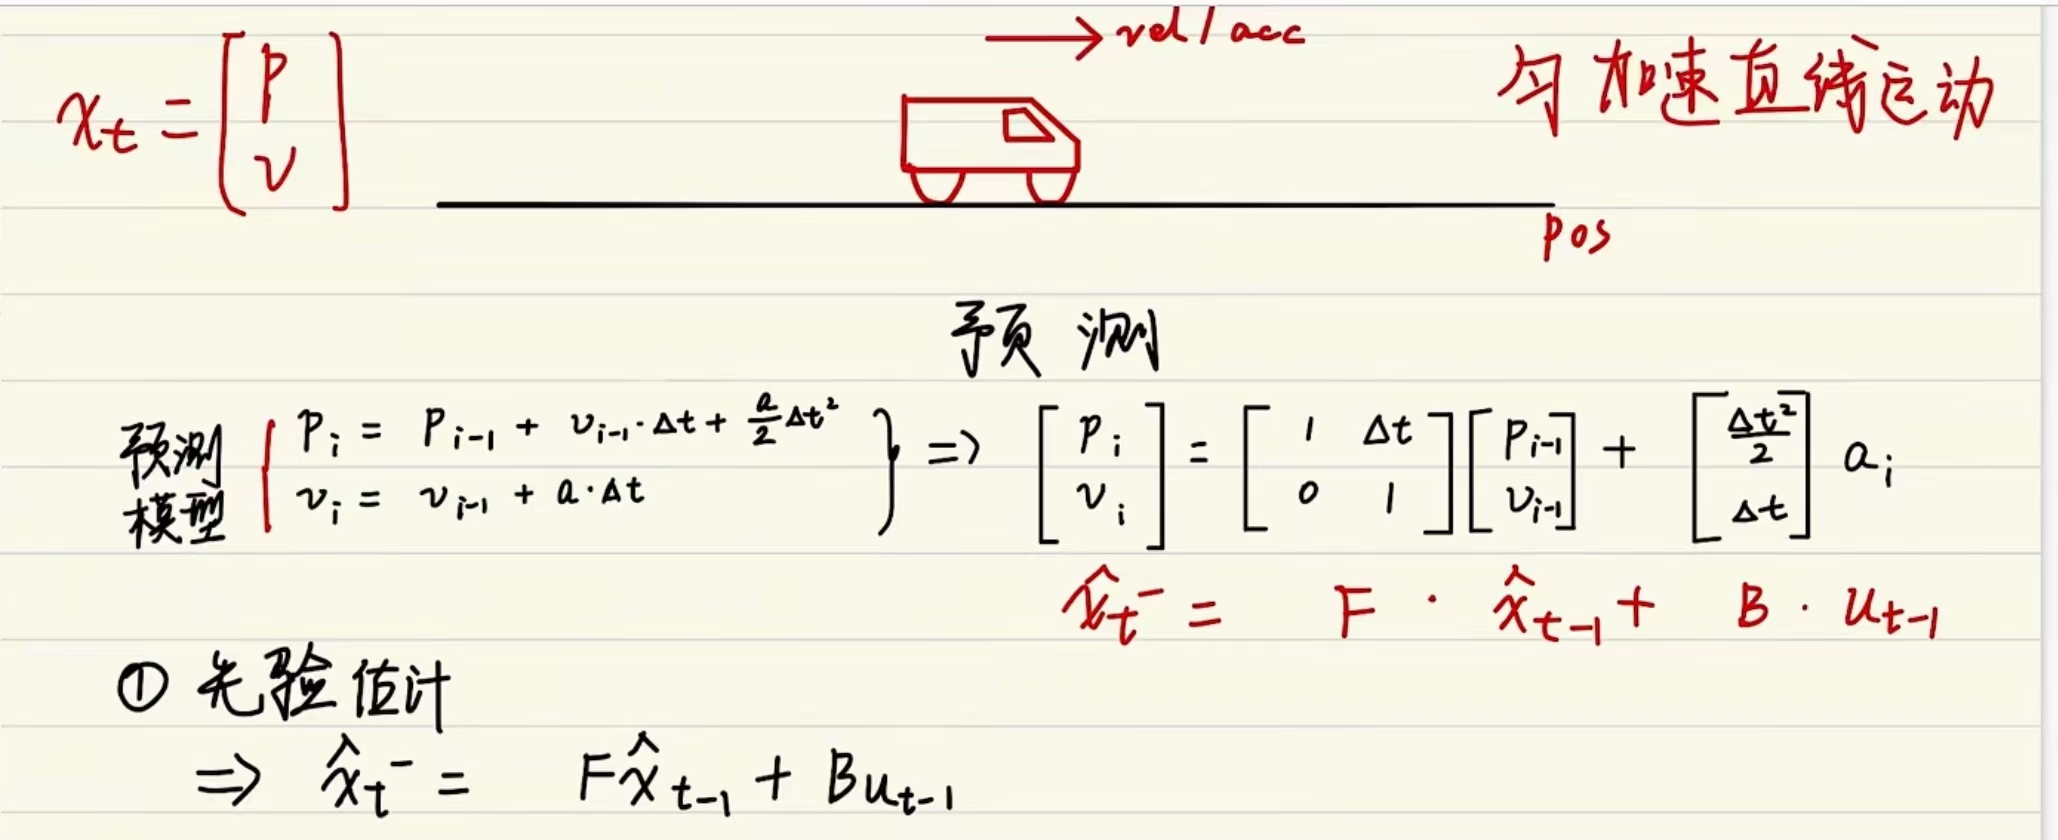 x_t = [p v]
→ vel / acc
匀加速直线运动
pos
预测
预测模型 { p_i = p_{i-1} + v_{i-1}·Δt + a/2 Δt²
v_i = v_{i-1} + a·Δt } => [p_i v_i] = [1 Δt 0 1] [p_{i-1} v_{i-1}] + [Δt²/2 Δt] a_i
x̂_t⁻ = F · x̂_{t-1} + B · u_{t-1}
① 先验估计
=> x̂_t⁻ = F x̂_{t-1} + B u_{t-1}